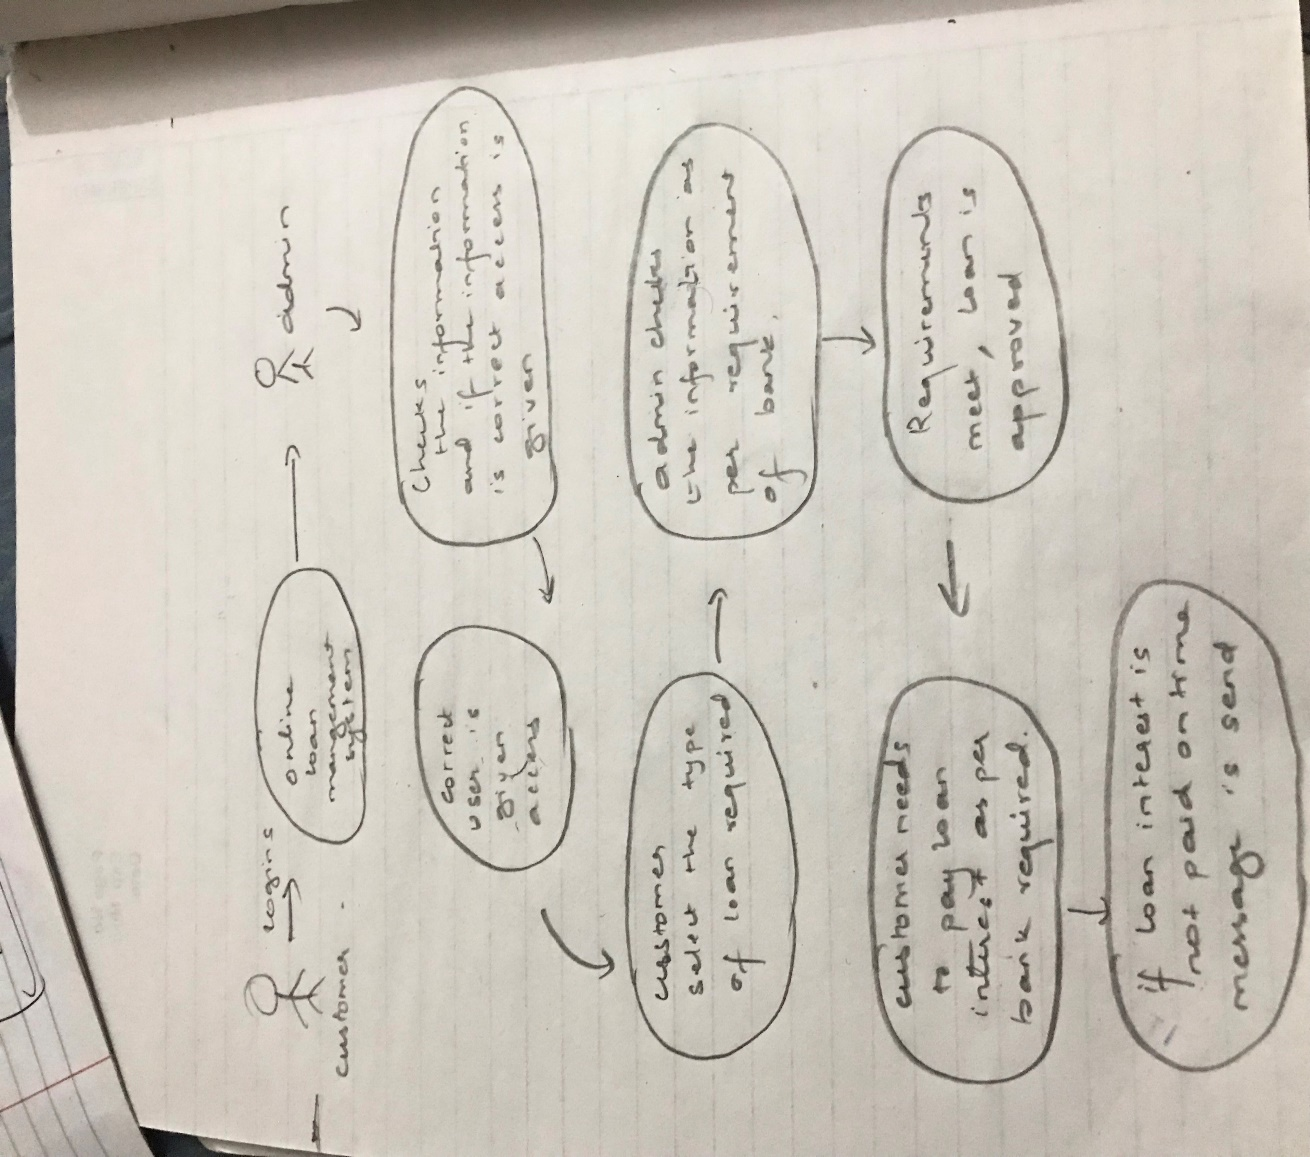 customer
logins
online
loan
management
system
admin
Checks
the information
and if the information
is correct access is
given
correct
user is
given
access
customer
select the type
of loan required
admin checks
the information as
per requirement
of bank.
Requirements
meet, loan is
approved
customer needs
to pay loan
interest as per
bank required.
if loan interest is
not paid on time
message is send